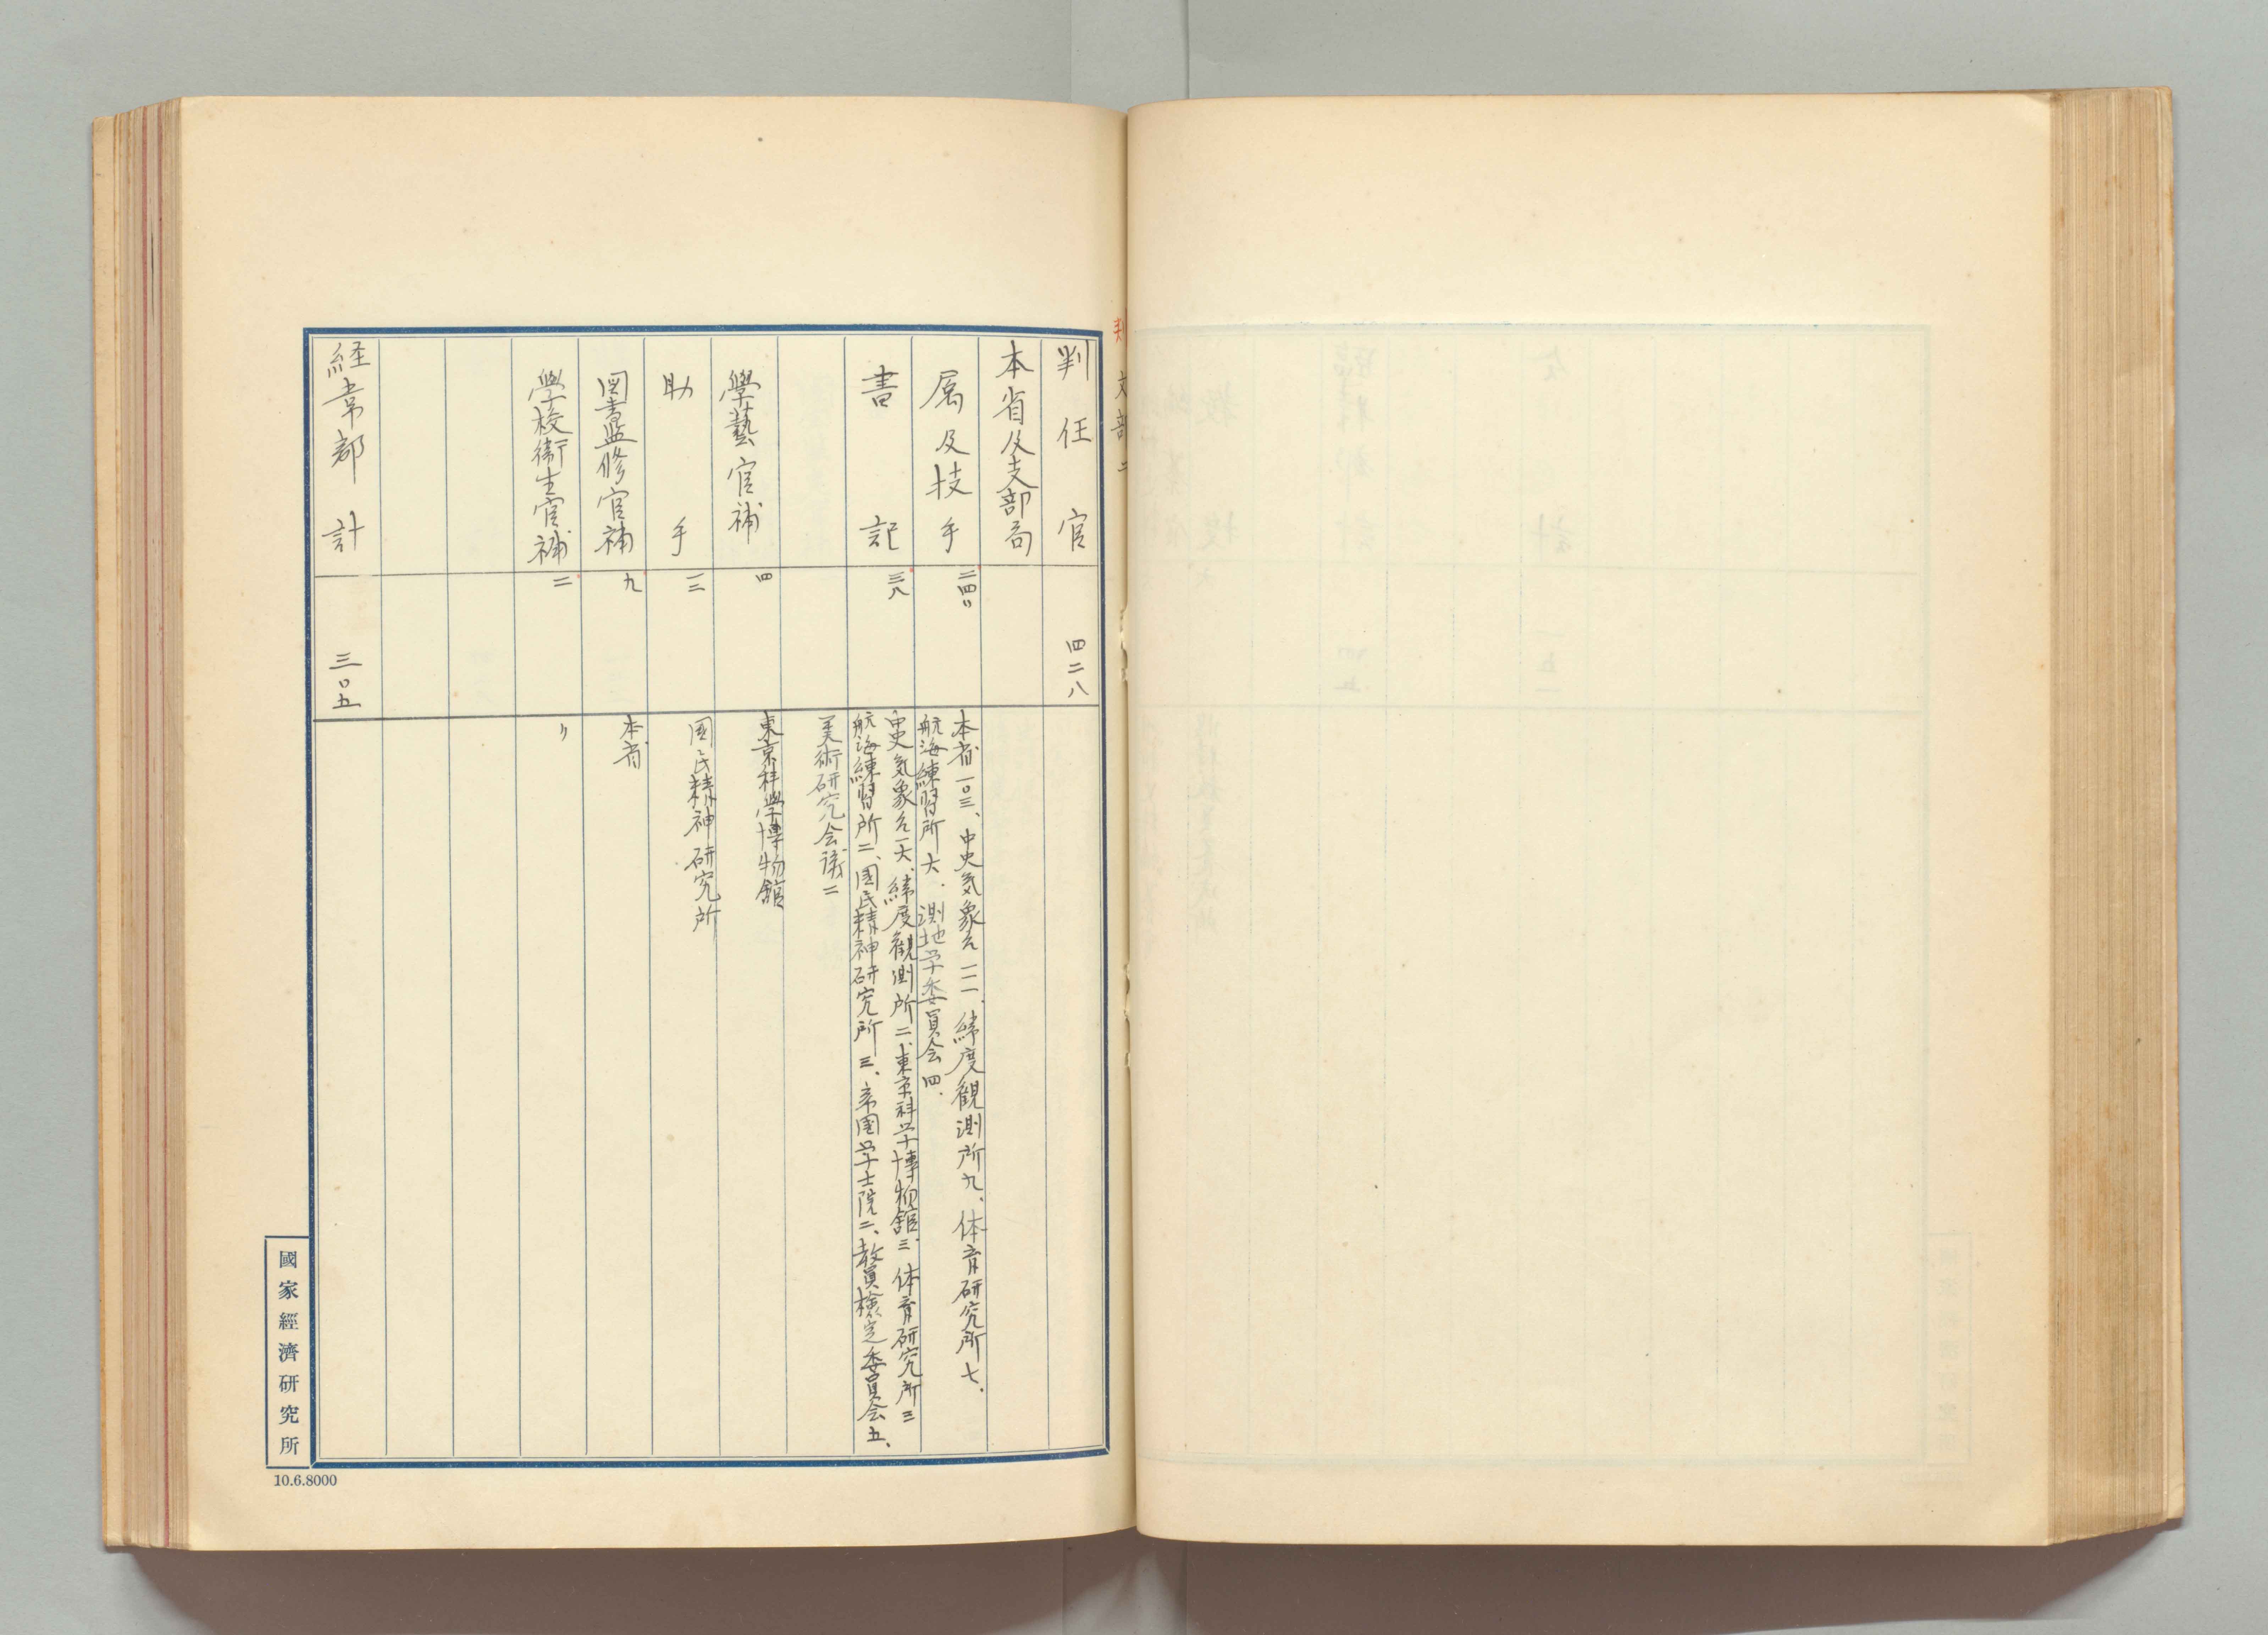 文部 二
判任官 四二八
本省及支部局
属及技手 二四〇 本省一〇三、中央気象台一一一、緯度観測所九、体育研究所七、
航海練習所六、測地学委員会四、
書記 三八 中央気象台一六、緯度観測所二、東京科学博物館三、体育研究所三
航海練習所二、国民精神研究所三、帝国学士院二、教員検定委員会五、
美術研究会議二
學藝官補 四 東京科學博物館
助手 一三 国民精神研究所
図書監修官補 九 本省
學校衛生官補 二 〃
経常部計 三〇五
國家經濟研究所
10.6.8000